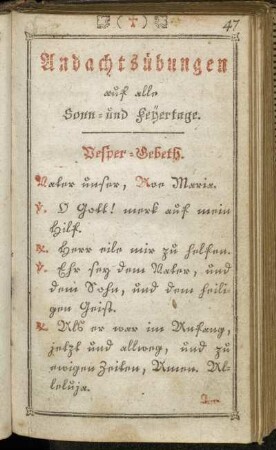 ( † ) 47
Andachtsübungen
auf alle
Sonn- und Feÿertage.
Vesper-Gebeth.
Vater unser, Ave Maria.
℣. O Gott! merk auf mein
Hilf.
℟. Herr eile mir zu helfen.
℣. Ehr seÿ dem Vater, und
dem Sohn, und dem heili-
gen Geist.
℟. Als er war im Anfang,
jetzt und allweg, und zu
ewigen Zeiten, Amen. Al-
leluja.